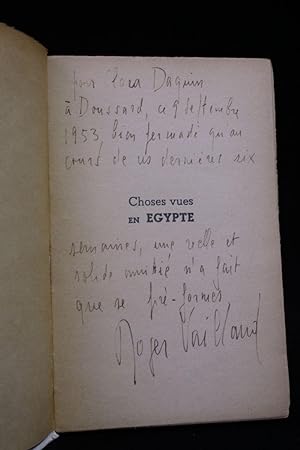 pour Cora Daquin
à Doussard, ce 9 septembre
1953 bien persuadé qu'au
cours de ces dernières six
Choses vues
EN EGYPTE
semaines, une réelle et
solide amitié n'a fait
que se pré-former
Roger Vailland